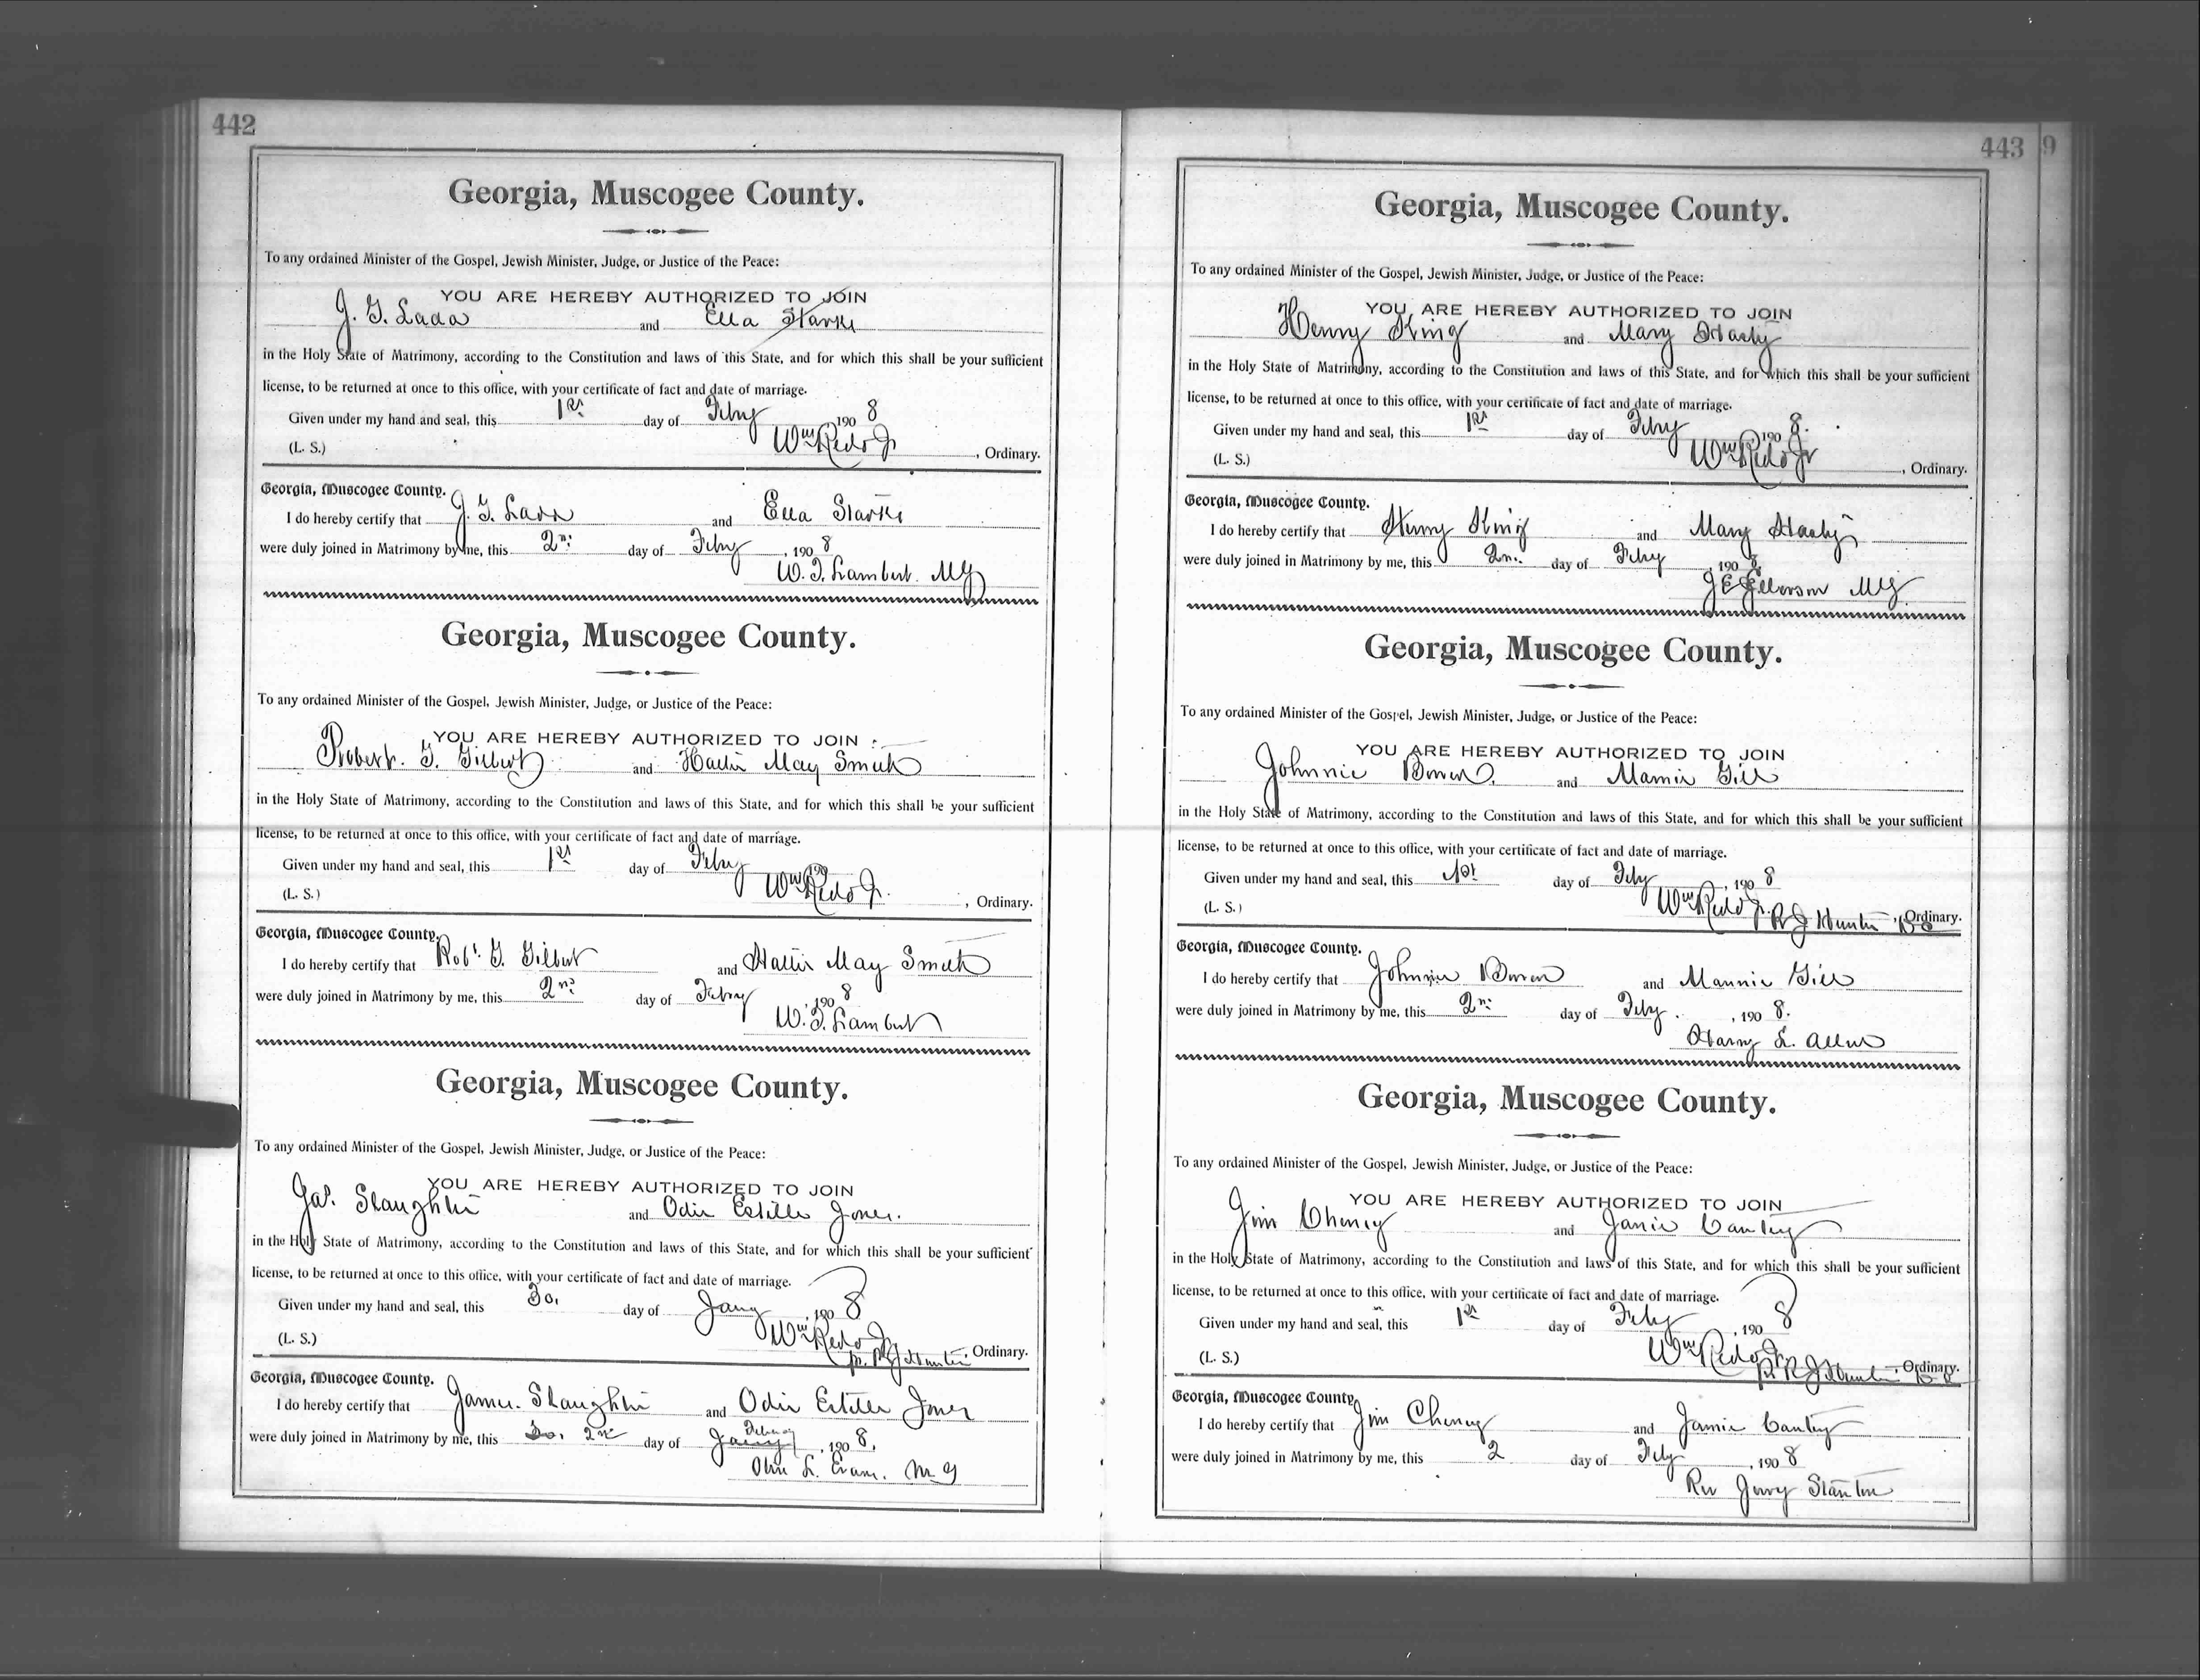 442
Georgia, Muscogee County.
To any ordained Minister of the Gospel, Jewish Minister, Judge, or Justice of the Peace:
YOU ARE HEREBY AUTHORIZED TO JOIN
J. G. Ladd and Ella Starks
in the Holy State of Matrimony, according to the Constitution and laws of this State, and for which this shall be your sufficient
license, to be returned at once to this office, with your certificate of fact and date of marriage.
Given under my hand and seal, this 1st day of Feby 1908
(L. S.) Wm Redd Jr , Ordinary.
Georgia, Muscogee County.
I do hereby certify that J. G. Ladd and Ella Starks
were duly joined in Matrimony by me, this 2nd day of Feby , 1908
W. T. Lambert. MG
Georgia, Muscogee County.
To any ordained Minister of the Gospel, Jewish Minister, Judge, or Justice of the Peace:
YOU ARE HEREBY AUTHORIZED TO JOIN
Robert. G. Gilbert and Hattie May Smith
in the Holy State of Matrimony, according to the Constitution and laws of this State, and for which this shall be your sufficient
license, to be returned at once to this office, with your certificate of fact and date of marriage.
Given under my hand and seal, this 1st day of Feby 190
(L. S.) Wm Redd Jr. , Ordinary.
Georgia, Muscogee County.
I do hereby certify that Robt. G. Gilbert and Hattie May Smith
were duly joined in Matrimony by me, this 2nd day of Feby , 1908
W. T. Lambert
Georgia, Muscogee County.
To any ordained Minister of the Gospel, Jewish Minister, Judge, or Justice of the Peace:
YOU ARE HEREBY AUTHORIZED TO JOIN
Jas. Slaughter and Odie Estelle Jones.
in the Holy State of Matrimony, according to the Constitution and laws of this State, and for which this shall be your sufficient
license, to be returned at once to this office, with your certificate of fact and date of marriage.
Given under my hand and seal, this 30. day of Jany , 1908
(L. S.) Wm Redd Jr , Ordinary.
pr. R J Hunter
Georgia, Muscogee County.
I do hereby certify that James. Slaughter and Odie Estelle Jones
were duly joined in Matrimony by me, this 30. 2nd day of Jany Feby , 1908.
L. Evans. M G
443 9
Georgia, Muscogee County.
To any ordained Minister of the Gospel, Jewish Minister, Judge, or Justice of the Peace:
YOU ARE HEREBY AUTHORIZED TO JOIN
Henry King and Mary
in the Holy State of Matrimony, according to the Constitution and laws of this State, and for which this shall be your sufficient
license, to be returned at once to this office, with your certificate of fact and date of marriage.
Given under my hand and seal, this 1st day of Feby 1908.
(L. S.) Wm Redd Jr , Ordinary.
Georgia, Muscogee County.
I do hereby certify that Henry King and Mary
were duly joined in Matrimony by me, this 2n. day of Feby , 1908
J E MG.
Georgia, Muscogee County.
To any ordained Minister of the Gospel, Jewish Minister, Judge, or Justice of the Peace:
YOU ARE HEREBY AUTHORIZED TO JOIN
Johnnie Bowen and Mamie Gill
in the Holy State of Matrimony, according to the Constitution and laws of this State, and for which this shall be your sufficient
license, to be returned at once to this office, with your certificate of fact and date of marriage.
Given under my hand and seal, this 1st day of Feby , 1908
(L. S.) Wm Redd Jr. R J Hunter , Ordinary.
Georgia, Muscogee County.
I do hereby certify that Johnnie Bowen and Mannie Gill
were duly joined in Matrimony by me, this 2nd day of Feby. , 1908.
Harry L. Allen
Georgia, Muscogee County.
To any ordained Minister of the Gospel, Jewish Minister, Judge, or Justice of the Peace:
YOU ARE HEREBY AUTHORIZED TO JOIN
Jim Cheney and Janie Cantey
in the Holy State of Matrimony, according to the Constitution and laws of this State, and for which this shall be your sufficient
license, to be returned at once to this office, with your certificate of fact and date of marriage.
Given under my hand and seal, this 1st day of Feby , 1908
(L. S.) Wm Redd Jr , Ordinary.
pr R J Hunter
Georgia, Muscogee County.
I do hereby certify that Jim Cheney and Janie Cantey
were duly joined in Matrimony by me, this 2 day of Feby , 1908
Rev Jerry Stanton